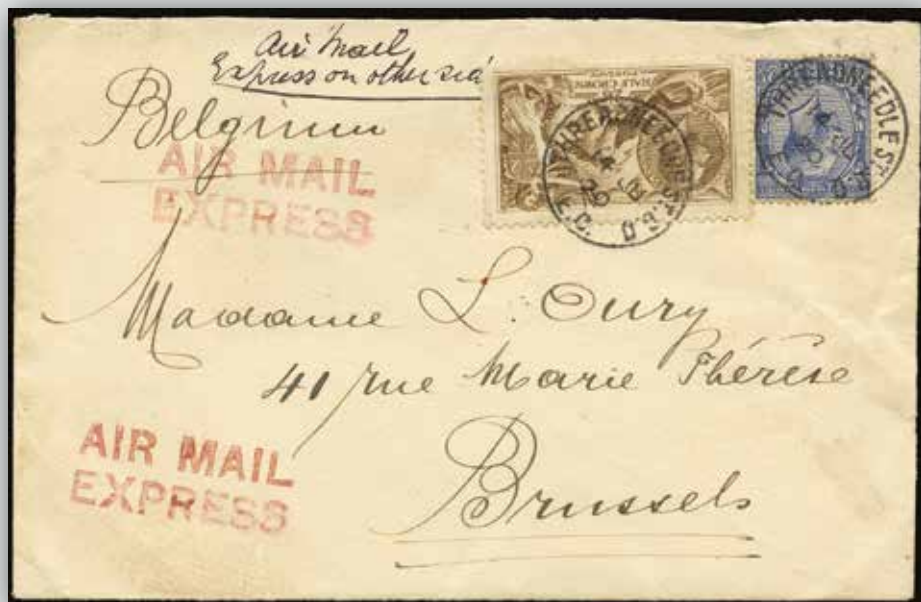 Air Mail
Express on other side
Belgium
AIR MAIL
EXPRESS
HALF CROWN
THREADNEEDLE ST. B.O.
E.C.
THREADNEEDLE ST. B.O.
E.C.
Madame L. Oury
41 rue Marie Thérèse
Brussels
AIR MAIL
EXPRESS